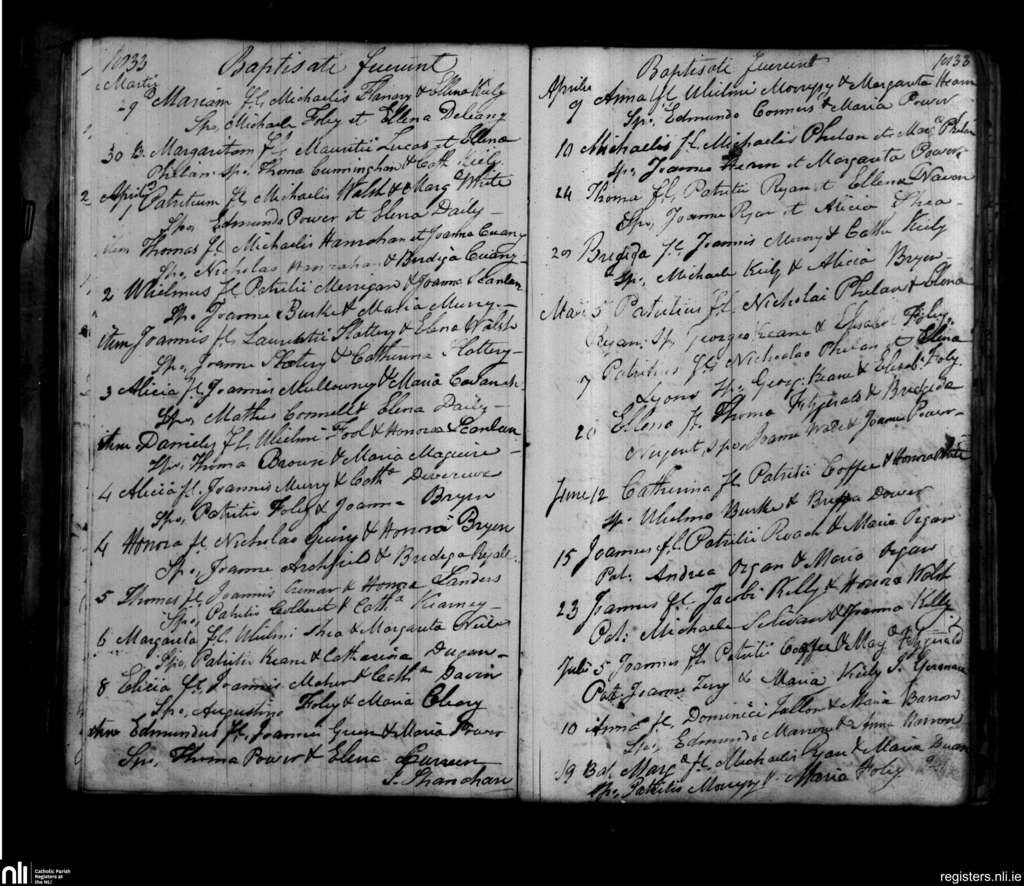 1833
Martii
Baptisati fuerunt
29 Mariam fl. Michaelis Flanory & Ellena Kiely
Spr. Michaele Foley et Ellena Deleany
30 B. Margaritam fl. Mauritii Lucas et Ellena
Phelan Spr. Thoma Cunningham & Cath. Kiely
April 1 Patritium fl. Michaelis Walsh & Marg. White
Spr. Edmundo Power et Elena Daily
Item Thomas fl. Michaelis Hanrahan et Joanna Cuany
Spr. Nicholas Hanrahan & Bridiga Cuany
2 Wilelmus fl. Patritii Merrigan & Joanna Scanlan
Spr. Joanne Burke & Maria Murry
Item Joannis fl. Laurentii Slattery & Elena Walsh
Spr. Joanne Slattery & Catherina Slattery
3 Alicia fl. Joannis Mullowney & Maria Cavanah
Spr. Matheo Connell & Elena Daily
Item Daniels fl. Wilelmi Fool & Honora Scanlan
Spr. Thoma Brown & Maria Maguire
4 Alicia fl. Joannis Murry & Catha Devereux
Spr. Patritio Foley & Joanna Bryen
4 Honora fl. Nicholao Guiry & Honora Bryen
Spr. Joanne Archfield & Bridiga Ryde
5 Thomas fl. Joannis & Honora Landers
Spr. Patritio & Catha Kearney
6 Margarita fl. Wilelmi Shea & Margarita
Spr. Patritio Keane & Catharina Dugan
8 Elicia fl. Joannis Maher & Catha Davin
Spr. Augustino Foley & Maria Cleary
Item Edmundus fl. Joannis Green & Maria Power
Spr. Thoma Power & Elena Curreen
J. Shanahan
1833
Baptisati fuerunt
Aprilis
9 Anna fl. Wilelmi Morrysy & Margarita Hearn
Spr. Edmundo Connors & Maria Power
10 Michaelis fl. Michaelis Phelan et Marg. Phelan
Spr. Joanne Hern et Margarita Power
24 Thoma fl. Patritii Ryan et Ellena Navon
Spr. Joanne Ryan et Alicia Shea
29 Bridiga fl. Joannis Morry & Cath Kiely
Spr. Michaele Kiely & Alicia Bryen
Maii 5 Patritius fl. Nicholai Phelan & Elena
Ryan. Sp. George Keane & Elisabt Foley
7 Patritius fl. Nicholao Phelan & Ellena
Lyons Sp. Georg. Keane & Elisab. Foly
20 Ellena fl. Thoma Fitzgerald & Bridgida
Nugent, Spr. Joanne Wade & Joanna Power
June 12 Catherina fl. Patritii Coffee & Honora White
Sp. Wilelmo Burke & Dower
15 Joannes fl. Patritii Roach & Maria Organ
Pat. Andrea Organ & Maria Organ
23 Joannes fl. Jacobi Kelly & Honora Walsh
Pat. Michaele & Joanna Kelly
Julii 5 Joannes fl. Patritii Coffee & Marg. Fitzgerald
Pat. Joanne & Maria Kiely
10 Anna fl. Dominici Fallon & Maria Barron
Spr. Edmundo Marron & Anna Barron
19 Bat. Marg. fl. Michaelis Ryan & Maria
Sp. Patritio Morrysy & Maria Foley
nli
Catholic Parish
Registers at
the NLI
registers.nli.ie